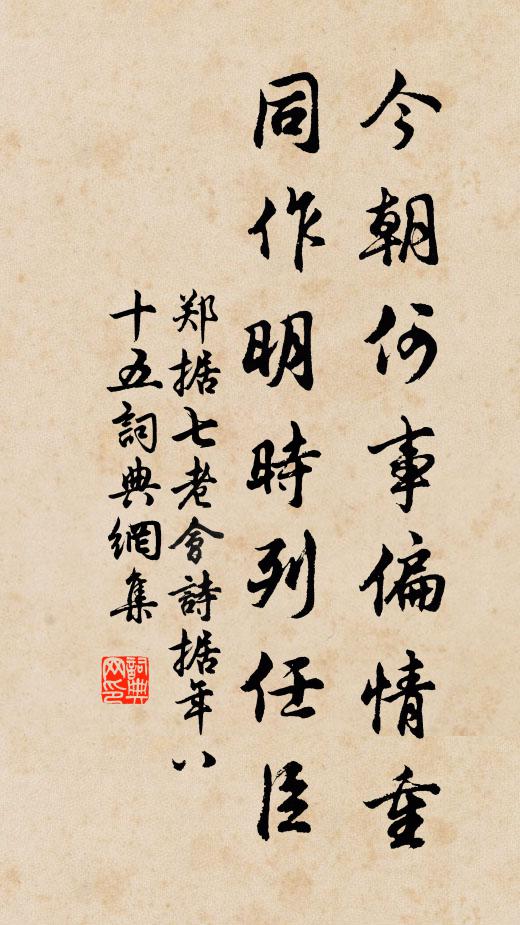 今朝何事偏情重
同作明時列任臣
郑据七老會詩据年八
十五詞典網集
詞典
网印